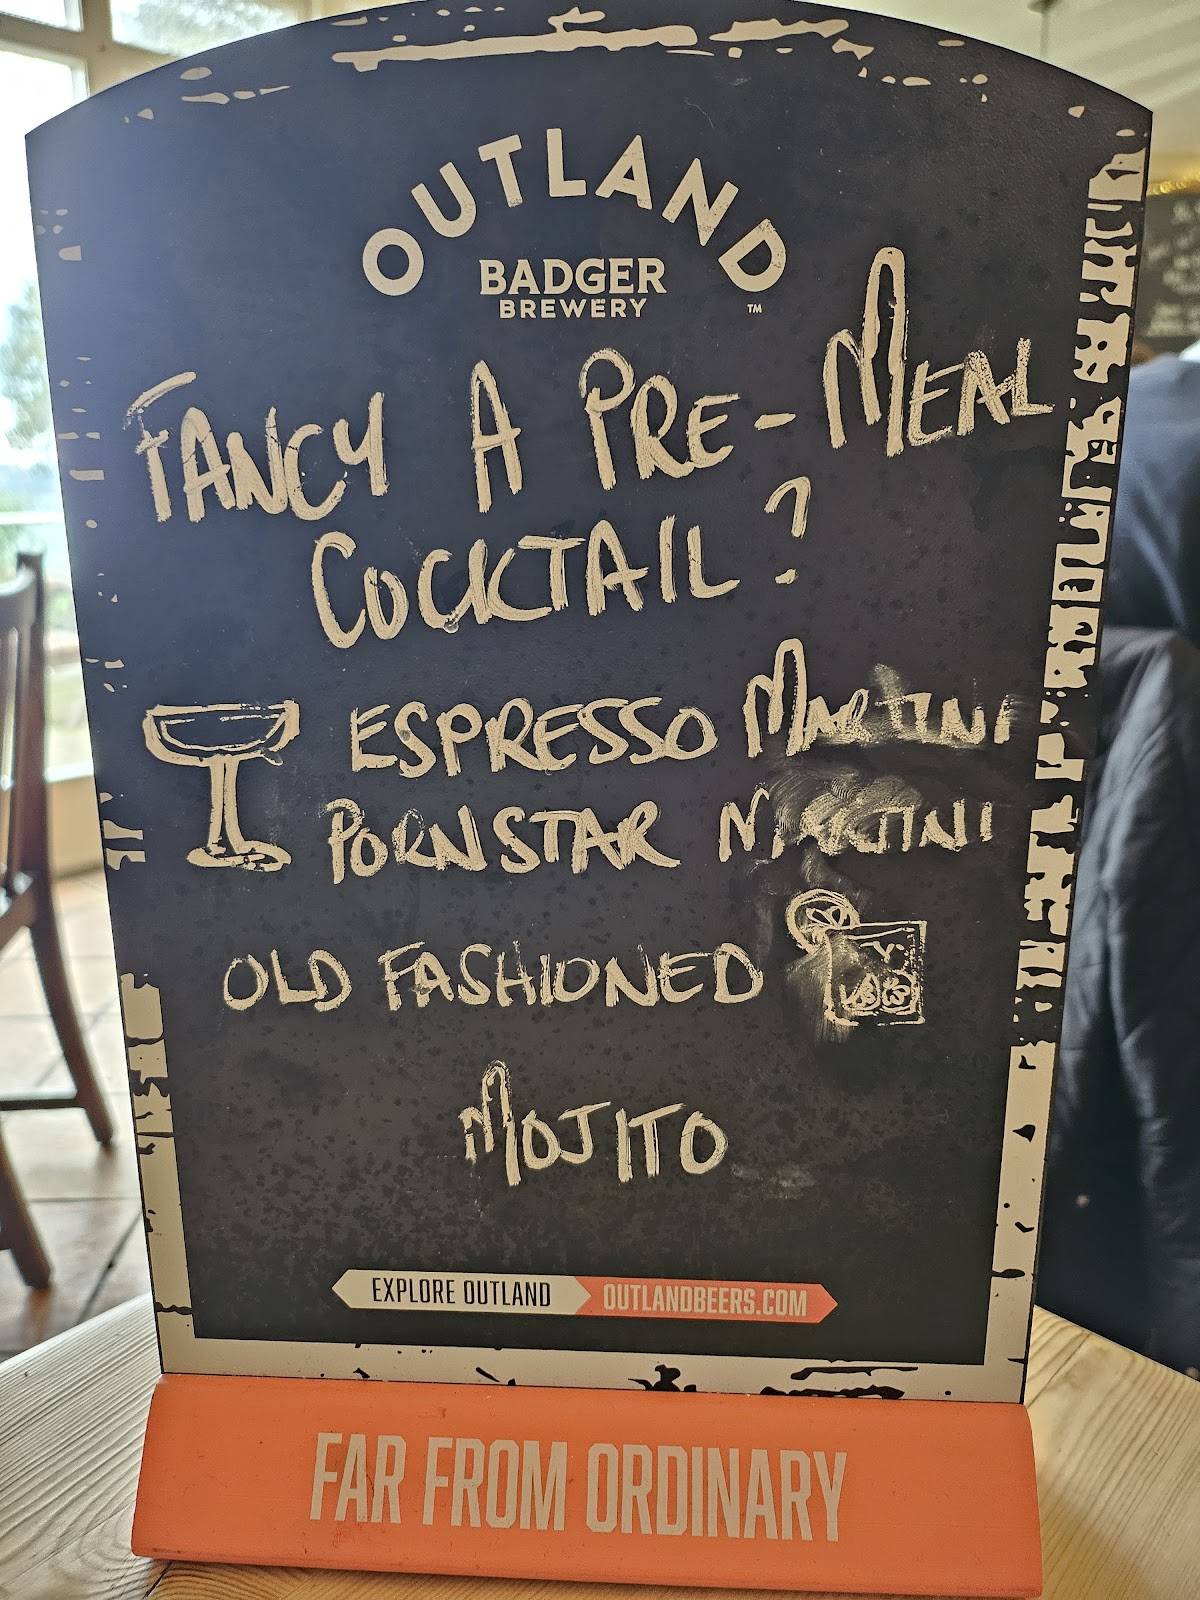 OUTLAND
BADGER
BREWERY
™
FANCY A PRE-MEAL
COCKTAIL?
ESPRESSO MARTINI
PORNSTAR MARTINI
OLD FASHIONED
MOJITO
EXPLORE OUTLAND OUTLANDBEERS.COM
FAR FROM ORDINARY